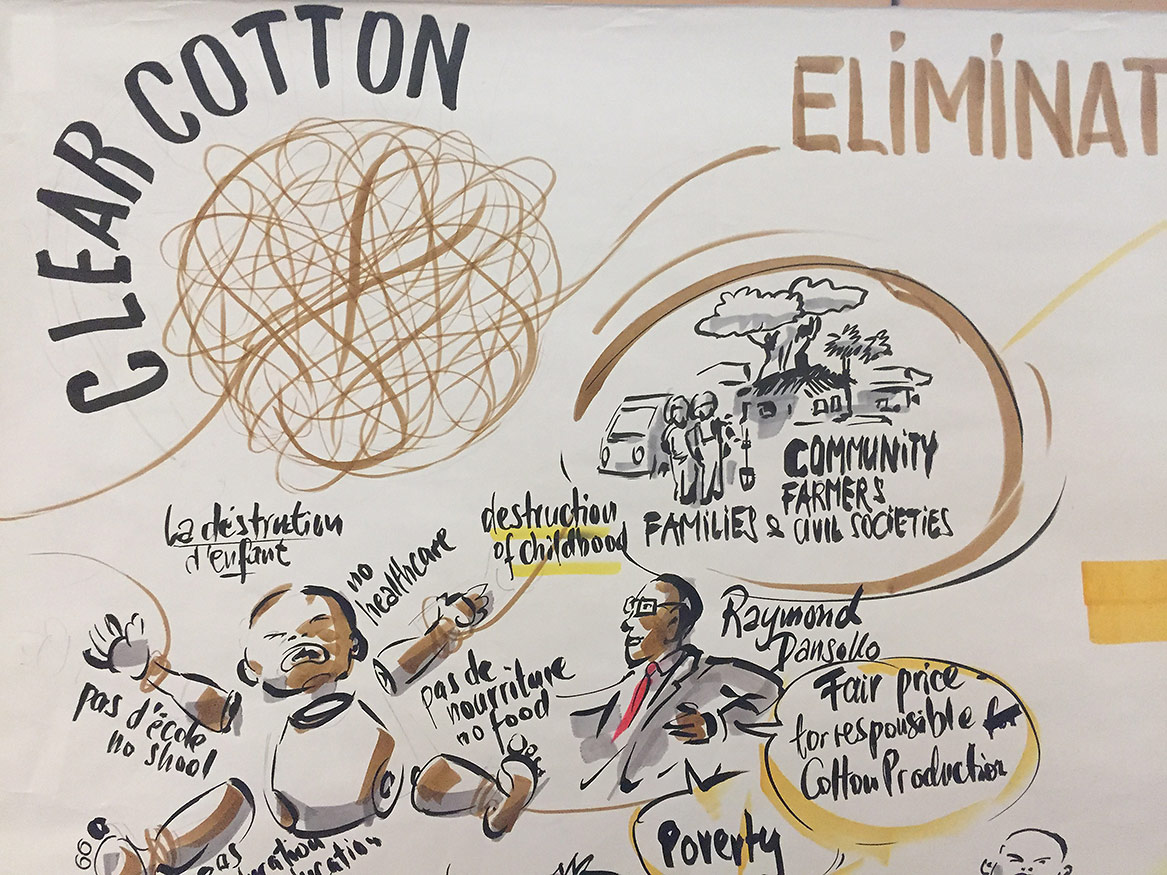 CLEAR COTTON
ELIMINAT
COMMUNITY
FARMERS
FAMILIES & CIVIL SOCIETIES
La déstrution
d'enfant
destruction
of childhood
no
healthcare
pas d'école
no shool
pas de
nourriture
no food
Raymond
Dansollo
Fair price
for responsible for
Cotton Production
Poverty